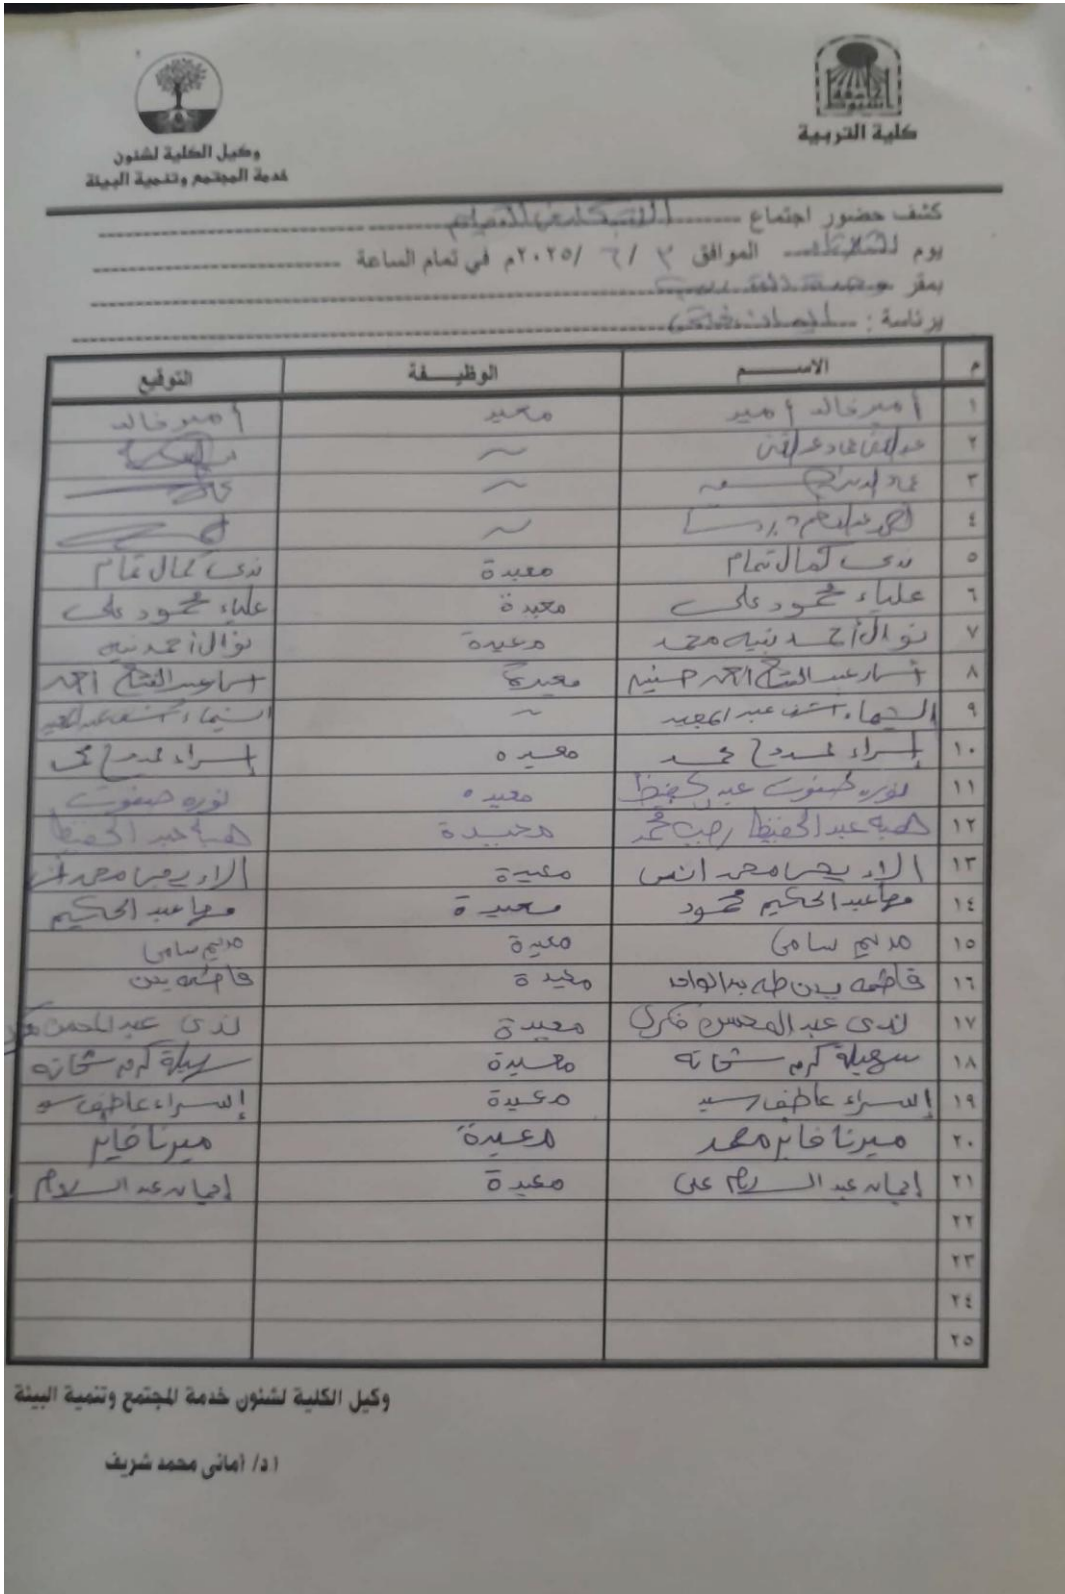 جامعة أسيوط
كلية التربية
وكيل الكلية لشئون
خدمة المجتمع وتنمية البيئة
كشف حضور اجتماع
يوم الثلاثاء الموافق ٣ / ٦ / ٢٠٢٥م في تمام الساعة
بمقر
برئاسة : إيمان فتحى
م الاســـم الوظيـــفة التوقيع
١ أمير خالد أمير معيد أمير خالد
٢ ~
٣ عماد الدين ~
٤ ~
٥ ندى كمال تمام معيدة ندى كمال تمام
٦ علياء محمود على معيدة علياء محمود على
٧ نوال أحمد نبيه محمد معيدة نوال أحمد نبيه
٨ أسماء عبد الفتاح احمد معيدة اسماء عبد الفتاح احمد
٩ الشيماء اشرف عبد المجيد ~ الشيماء اشرف عبد المجيد
١٠ إسراء ممدوح محمد معيده إسراء ممدوح
١١ نوره صفوت عبد الحفيظ معيده نوره صفوت
١٢ هبة عبد الحفيظ رجب محمد معيدة هبة عبد الحفيظ
١٣ الاء يحيى محمد انس معيدة الاء يحيى محمد انس
١٤ مها عبد الحكيم محمود معيدة مها عبد الحكيم
١٥ مريم سامى معيدة مريم سامى
١٦ فاطمه طه معيدة فاطمه
١٧ ندى عبد المحسن فكرى معيدة ندى عبد المحسن فكرى
١٨ سهيلة كرم شحاته معيدة سهيلة كرم شحاته
١٩ إسراء عاطف سيد معيدة إسراء عاطف
٢٠ ميرنا فايز محمد معيدة ميرنا فايز
٢١ إيمان عبد السلام على معيدة إيمان عبد السلام
٢٢
٢٣
٢٤
٢٥
وكيل الكلية لشئون خدمة المجتمع وتنمية البيئة
ا د/ أمانى محمد شريف